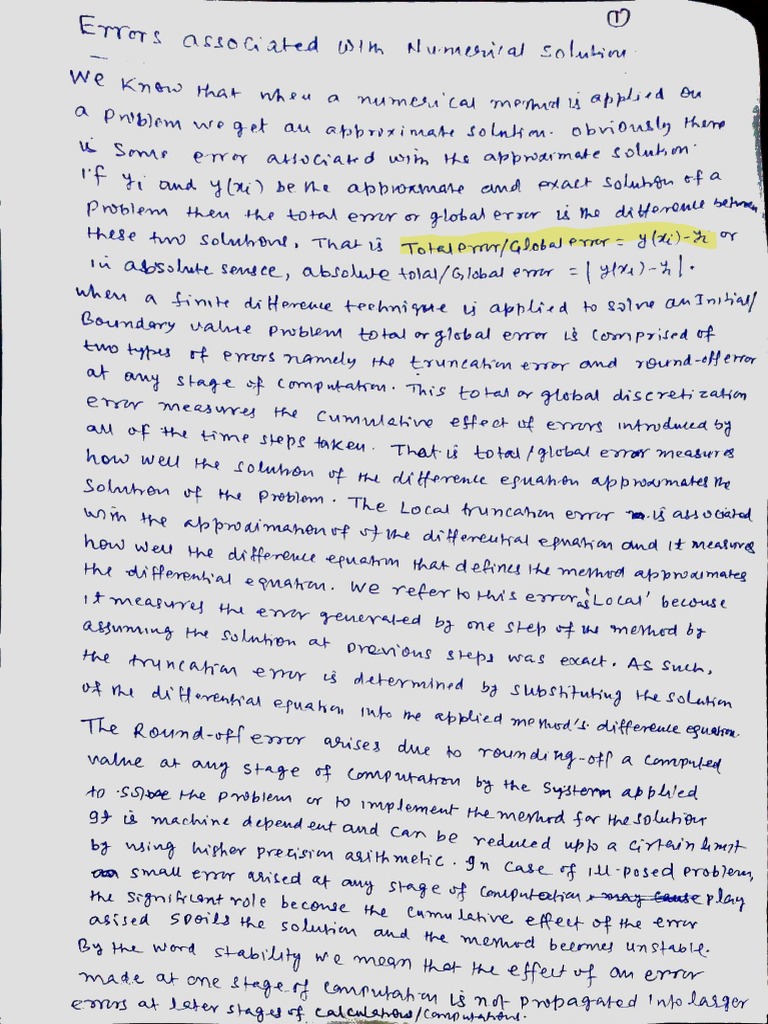 ①
Errors associated with Numerical solution.
We know that when a numerical method is applied on
a problem we get an approximate solution. Obviously there
is some error associated with the approximate solution.
If yi and y(xi) be the approxmate and exact solution of a
problem then the total error or global error is the difference between
these two solutions, That is Total error/Global error = y(xi)-yi or
in absolute sensce, absolute total/Global error = |y(xi)-yi|.
When a finite difference technique is applied to solve an Initial/
Boundary value problem total or global error is comprised of
two types of errors namely the truncation error and round-off error
at any stage of computation. This total or global discretization
error measures the cumulative effect of errors introduced by
all of the time steps taken. That is total/global error measures
how well the solution of the difference equation approxmates the
solution of the problem. The Local truncation error is associated
with the approximation of of the differential equation and it measures
how well the difference equation that defines the method approximates
the differential equation. We refer to this error as 'Local' because
it measures the error generated by one step of the method by
assuming the solution at previous steps was exact. As such,
the truncation error is determined by substituting the solution
of the differential equation into the applied method's difference equation.
The Round-off error arises due to rounding-off a computed
value at any stage of computation by the system applied
to solve the problem or to implement the method for the solution
It is machine dependent and can be reduced upto a cirtain limit
by using higher precision arithmetic. In case of ill-posed problem,
small error arised at any stage of computation may cause play
the significant role because the cumulative effect of the error
arised spoils the solution and the method becomes unstable.
By the word stability we mean that the effect of an error
made at one stage of computation is not propagated into larger
errors at later stages of calculations/computations.